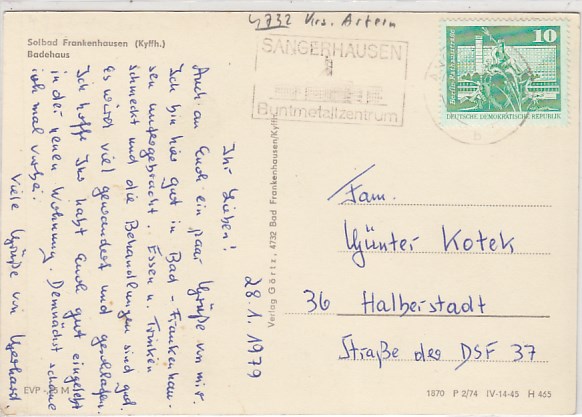 4732 Krs. Artern
Solbad Frankenhausen (Kyffh.)
Badehaus
SANGERHAUSEN
Buntmetallzentrum
10
Berlin, Rathausstraße
DEUTSCHE DEMOKRATISCHE REPUBLIK
28.1.1979
Ihr Lieben!
Auch an Euch ein paar Grüße von mir.
Ich bin hier gut in Bad-Frankenhau-
sen untergebracht. Essen u. Trinken
schmeckt und die Behandlungen sind gut.
Es wird viel gewandert und geschlafen.
Ich hoffe Ihr habt Euch gut eingelebt
in der neuen Wohnung. Demnächst schaue
ich mal vorbei.
Viele Grüße von Gerhard
Verlag Görtz, 4732 Bad Frankenhausen/Kyffh.
Fam.
Günter Kotek
36 Halberstadt
Straße der DSF 37
EVP M
1870 P 2/74 IV-14-45 H 465